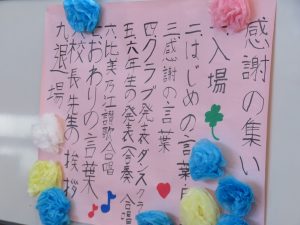 感謝の集い
入場
二、はじめの言葉
三、感謝の言葉
四、クラブ発表ダンスクラブ
五、六年生の発表(合奏 合唱
六、比美乃江讃歌合唱
七、おわりの言葉
八、校長先生の挨拶
九、退場